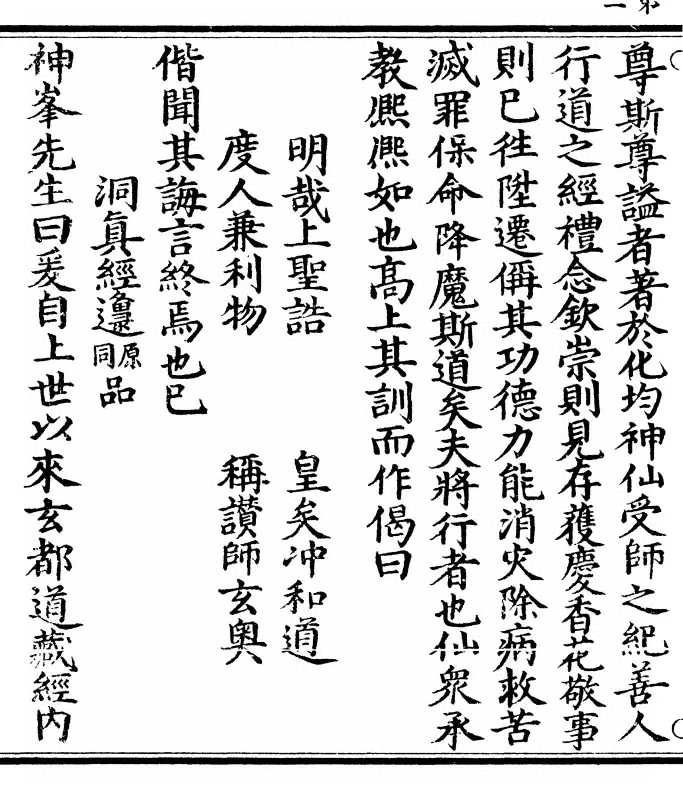 尊斯尊謚者著於化均神仙受師之紀善人
行道之經禮念欽崇則見存獲慶香花敬事
則已徃陞遷偁其功德力能消灾除病救苦
滅罪保命降魔斯道矣夫將行者也仙衆承
教熈熈如也高上其訓而作偈曰
明哉上聖誥　皇矣冲和道
度人兼利物　稱讃師玄奥
偕聞其誨言終焉也已
洞真經邍原同品
神峯先生曰爰自上世以來玄都道藏經内